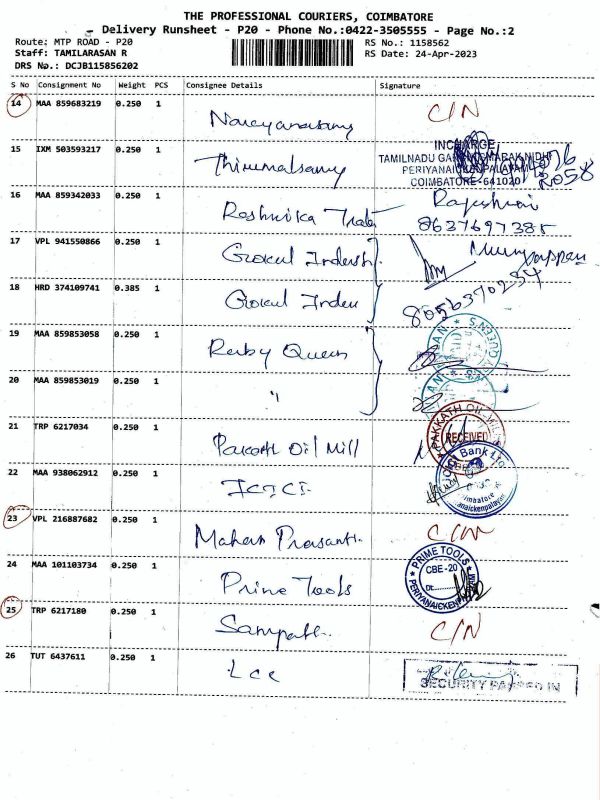 THE PROFESSIONAL COURIERS, COIMBATORE
Delivery Runsheet - P20 - Phone No.:0422-3505555 - Page No.:2
Route: MTP ROAD - P20
RS No.: 1158562
Staff: TAMILARASAN R
RS Date: 24-Apr-2023
DRS No.: DCJB115856202
S No Consignment No Weight PCS Consignee Details Signature
14 MAA 859683219 0.250 1 Narayanasamy C/N
15 IXM 503593217 0.250 1 Thirumalsamy
INCHARGE
TAMILNADU
PERIYANAICKENPALAYAM
COIMBATORE-641020
16 MAA 859342033 0.250 1 Roshnika
8637697385
17 VPL 941550866 0.250 1 Gokul
18 HRD 374109741 0.385 1 Gokul
8056370234
19 MAA 859853058 0.250 1 Ruby Queen
QUEENS
20 MAA 859853019 0.250 1 "
21 TRP 6217034 0.250 1 Pakath Oil Mill
PAKKATH OIL MILL
RECEIVED
22 MAA 938062912 0.250 1 ICICI
ICICI Bank Ltd
23 VPL 216887682 0.250 1 Mahesh Prasanth C/N
24 MAA 101103734 0.250 1 Prime Tools
PRIME TOOLS
CBE-20
Dt:
25 TRP 6217180 0.250 1 Sampath C/N
26 TUT 6437611 0.250 1
SECURITY PASSED IN